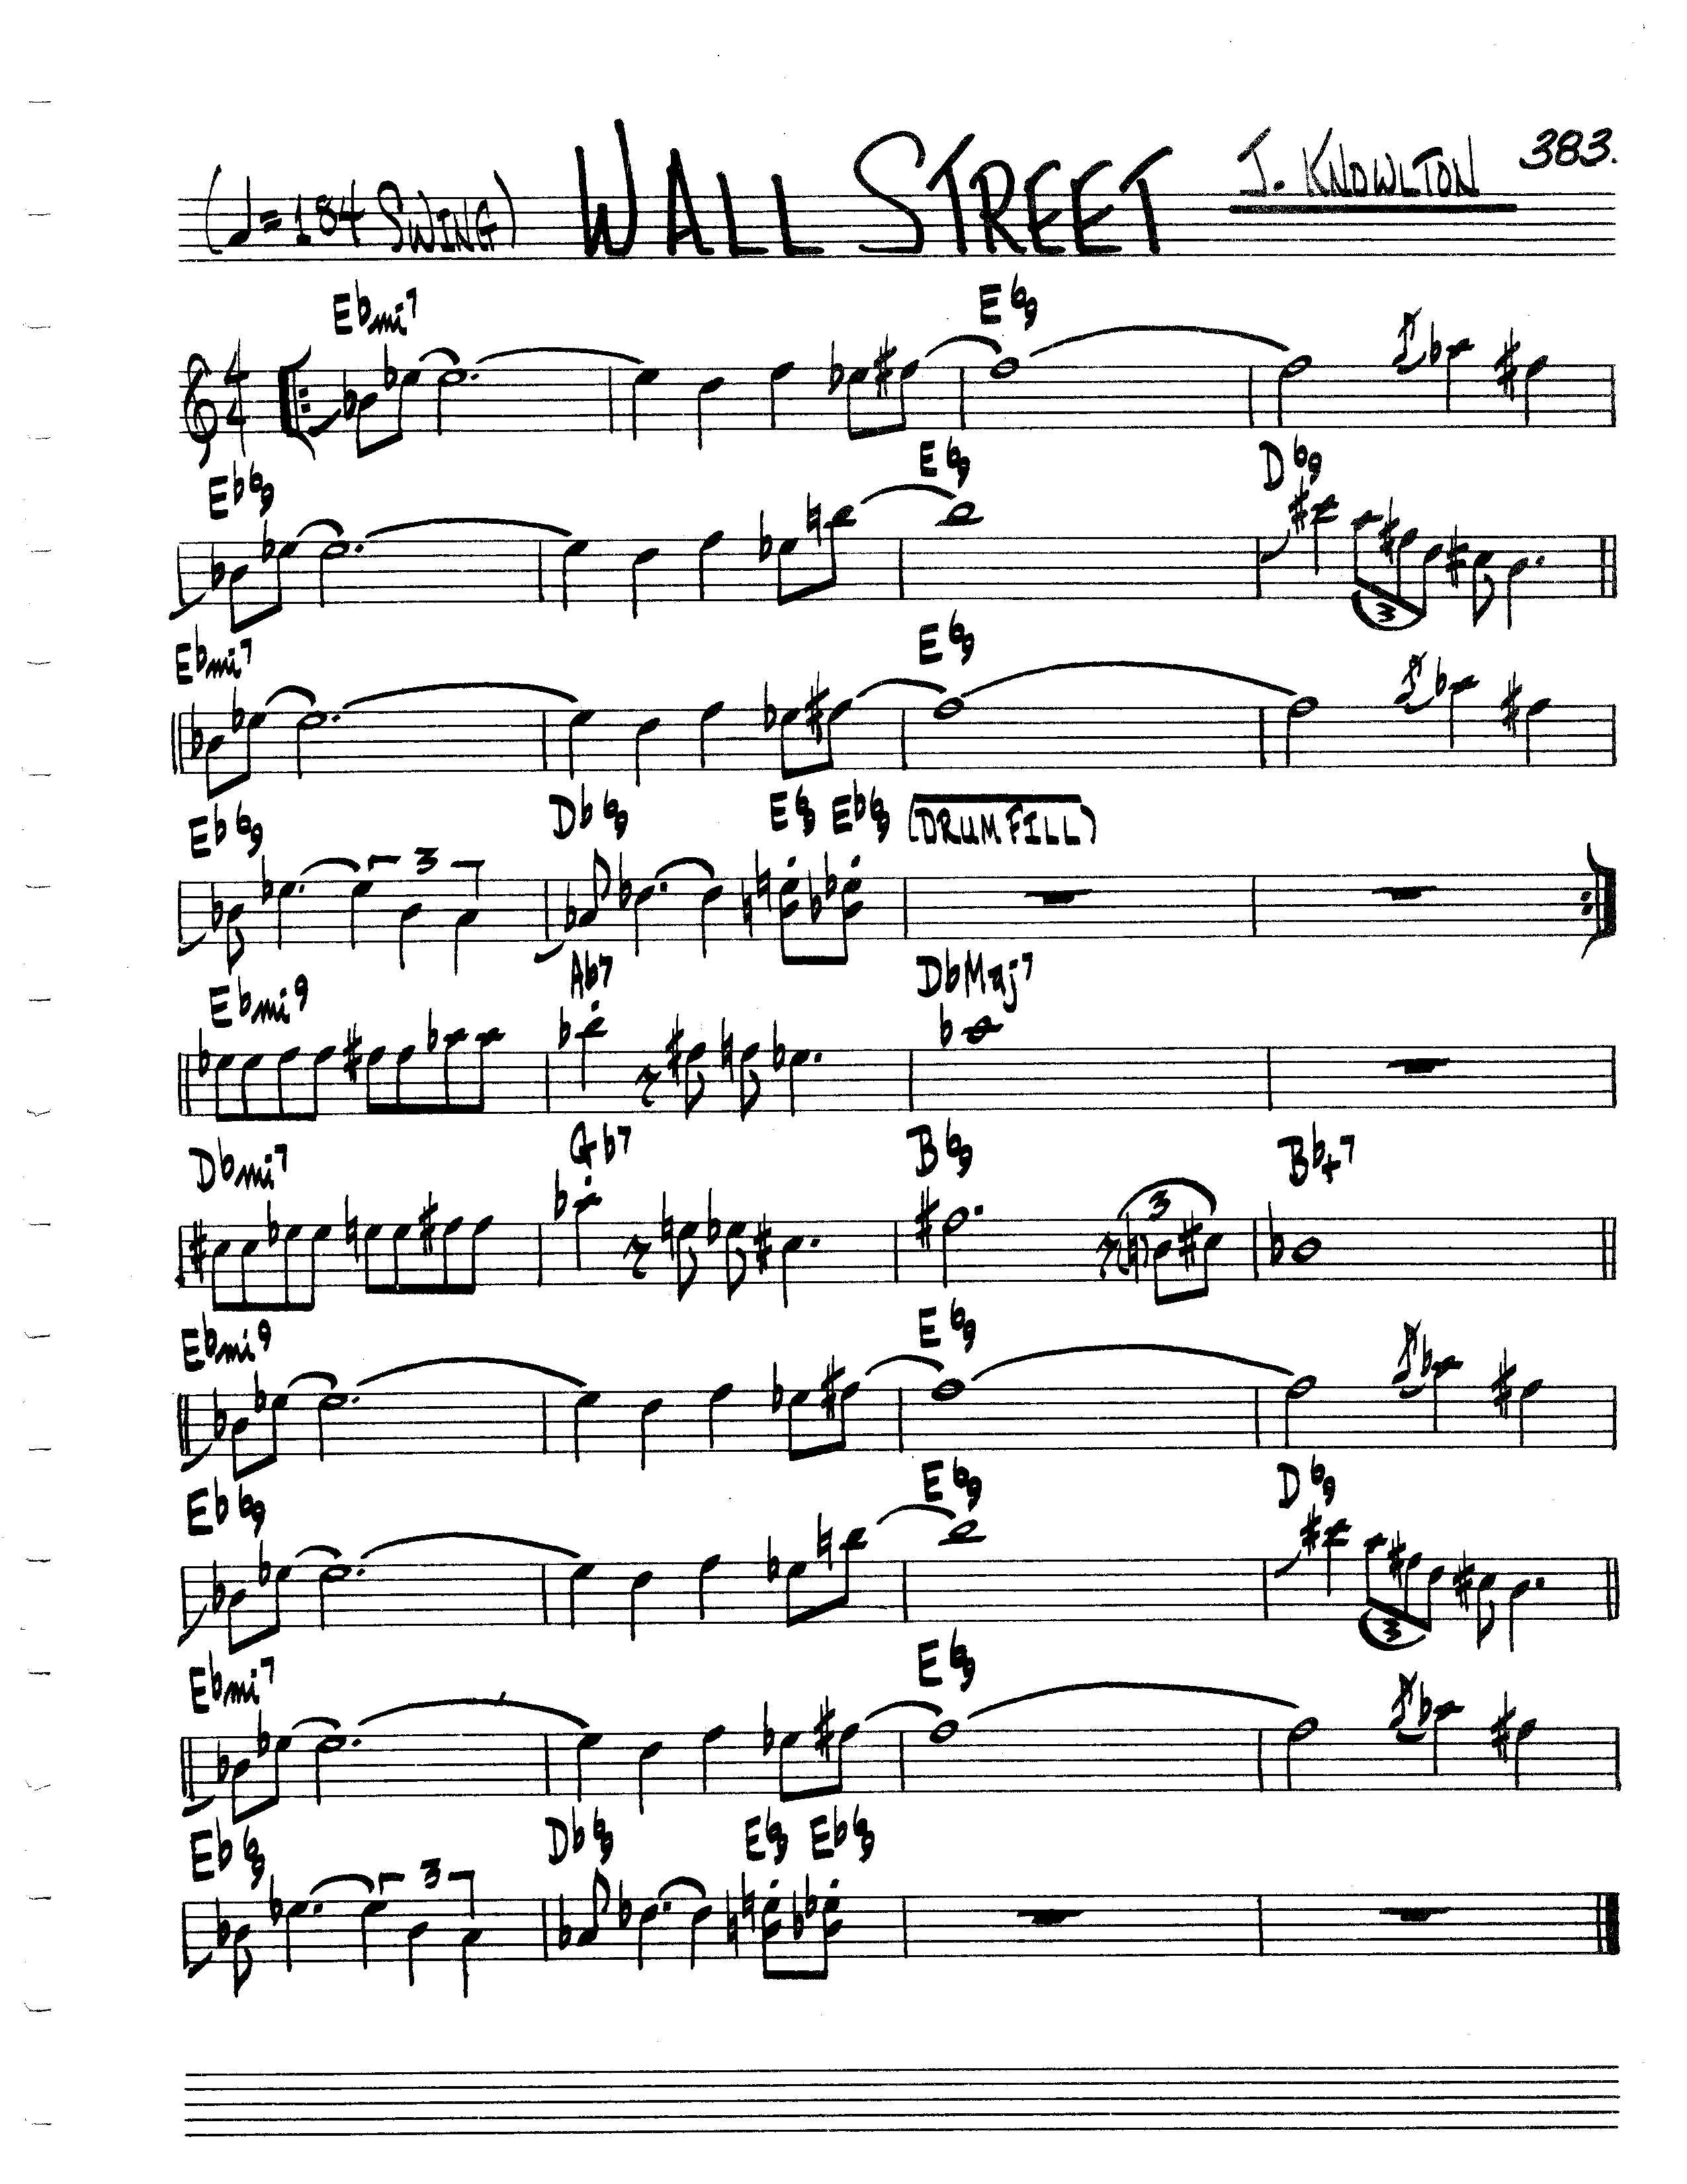 (♩=184 SWING) WALL STREET J. KNOWLTON 383.
Ebmi7 E69
Eb69 E69 D69
3
Ebmi7 E69
Eb69 Db69 E69 Eb69 (DRUM FILL)
3
Ebmi9 Ab7 DbMaj7
Dbmi7 Gb7 B69 Bb+7
3
Ebmi9 E69
Eb69 E69 D69
3
Ebmi7 E69
Eb69 Db69 E69 Eb69
3